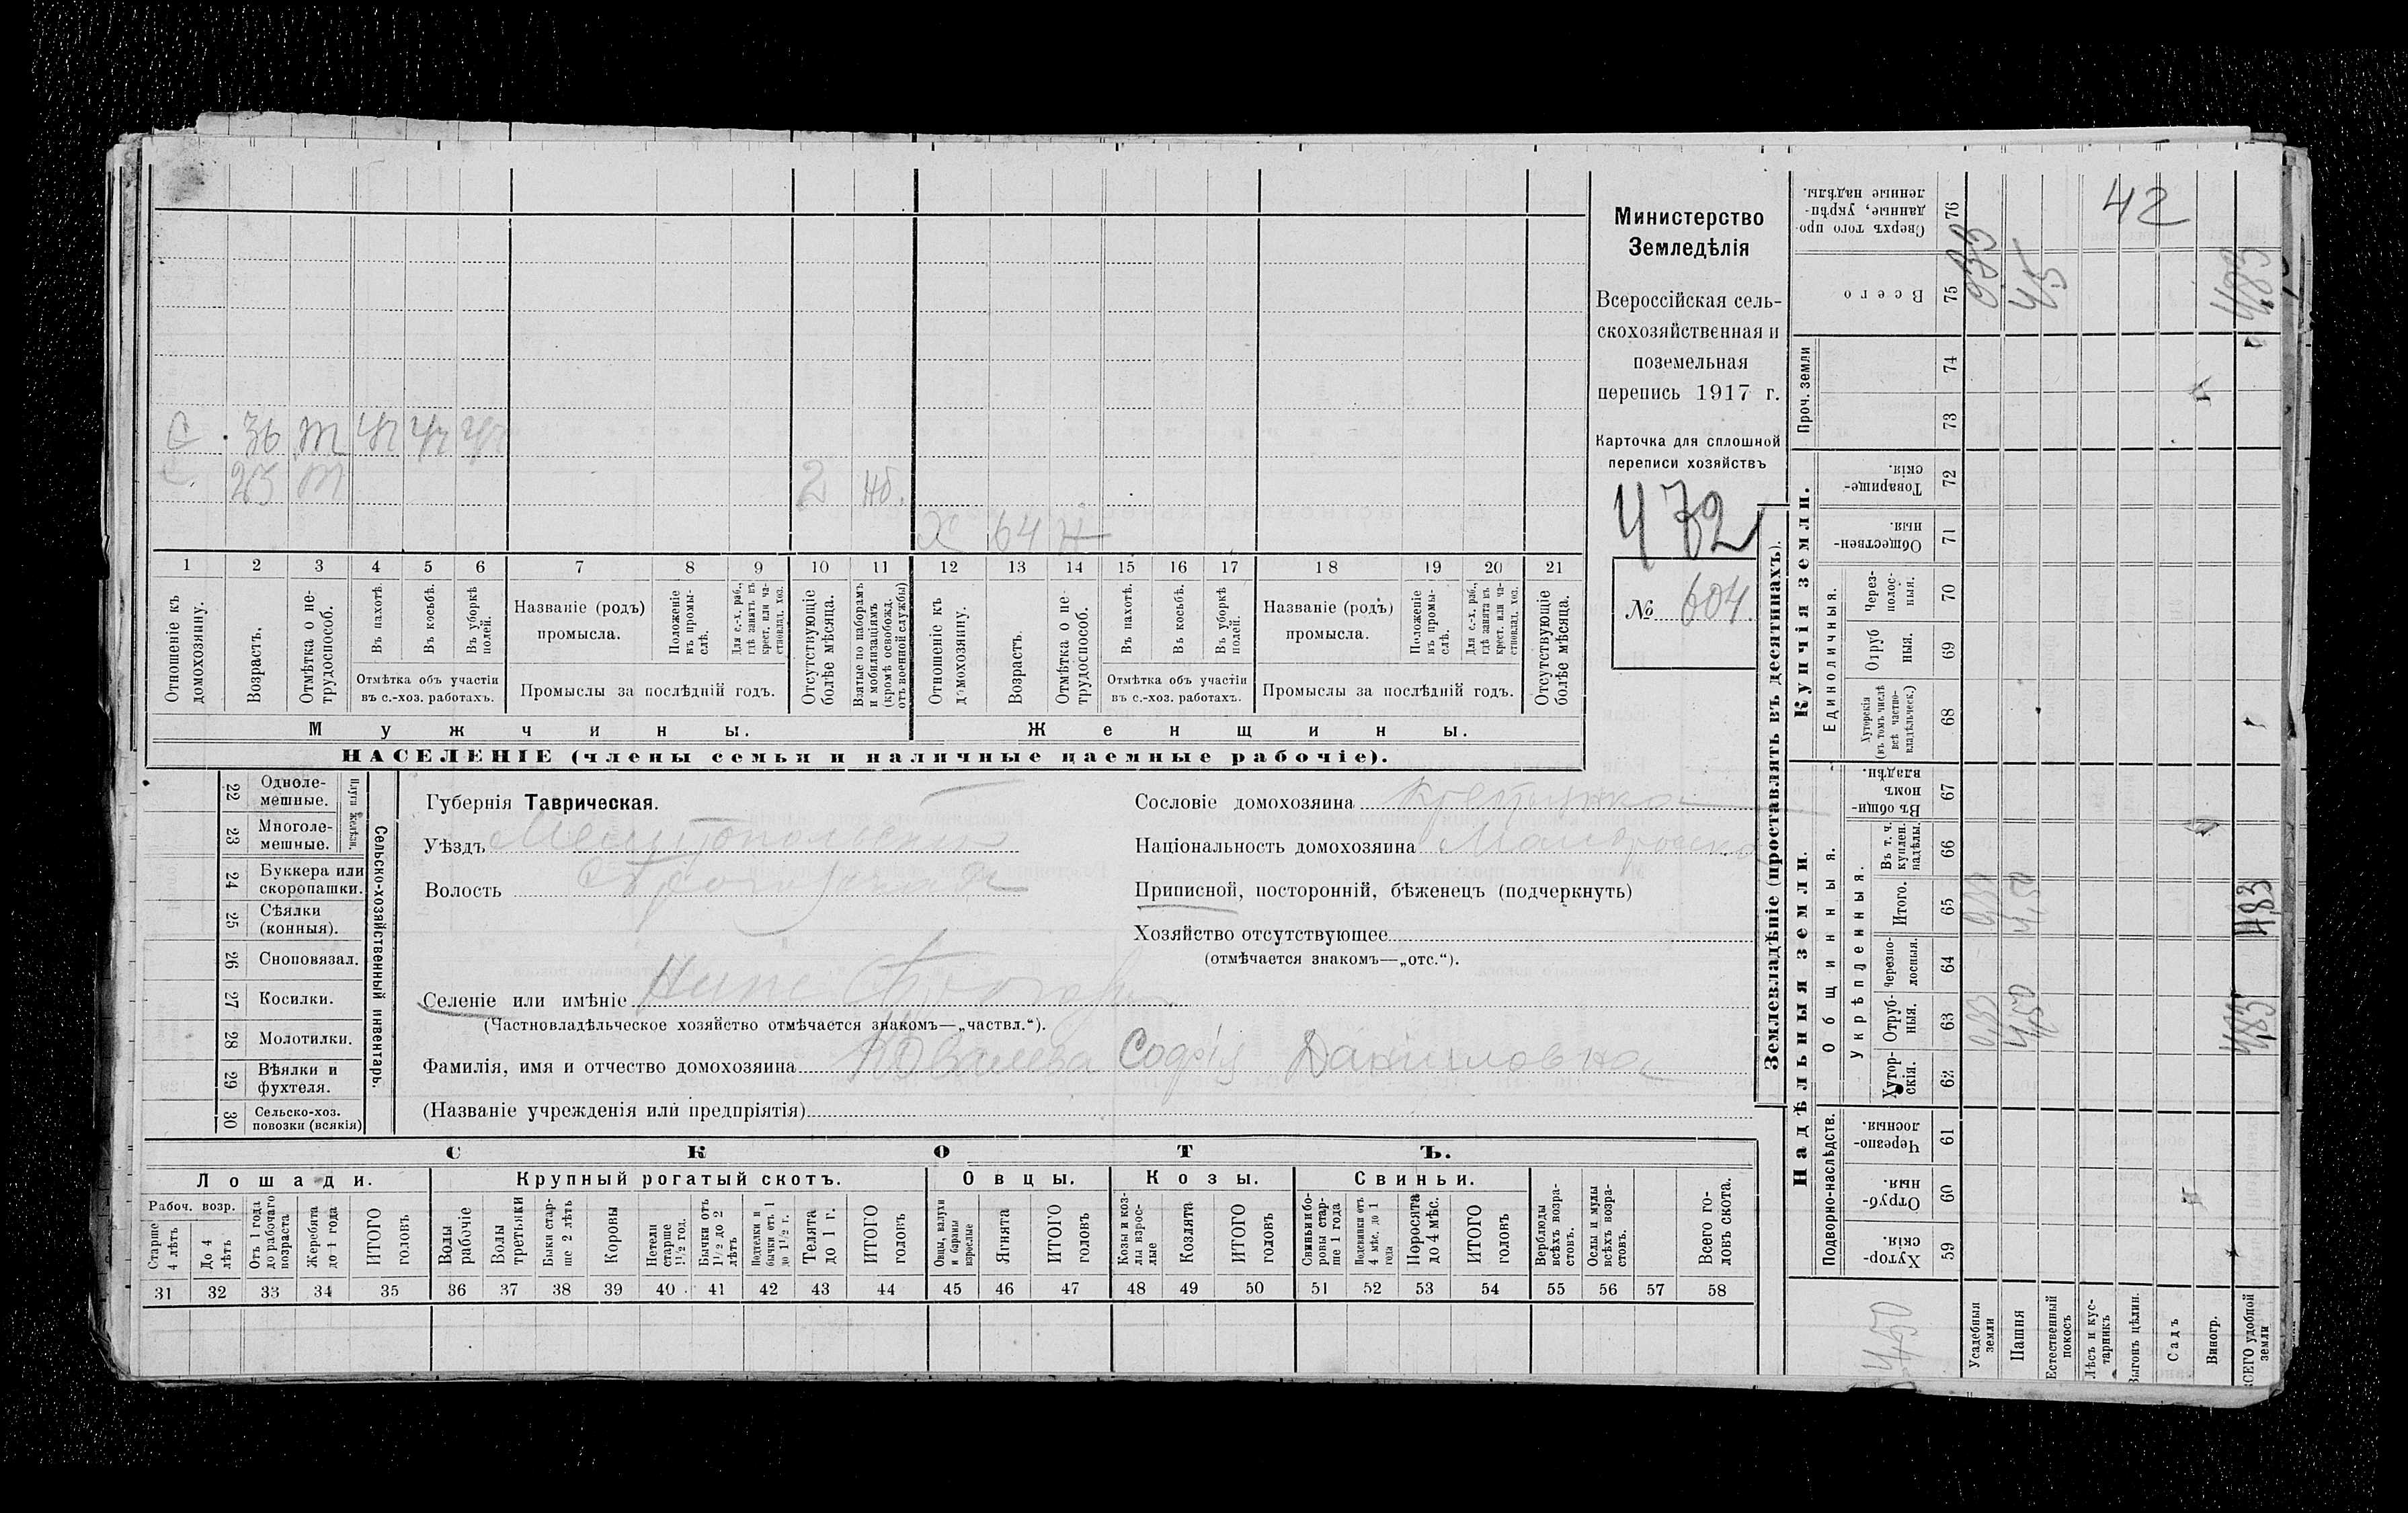 Министерство
Земледѣлія
Всероссійская сель-
скохозяйственная и
поземельная
перепись 1917 г.
Карточка для сплошной
переписи хозяйствъ
472
№ 604
С 36 т
С 23 т 2 нб.
Х 64 н
1 2 3 4 5 6 7 8 9 10 11 12 13 14 15 16 17 18 19 20 21
Отношеніе къ домохозяину.
Возрастъ.
Отмѣтка о не-трудоспособ.
Въ пахотѣ.
Въ косьбѣ.
Въ уборкѣ полей.
Отмѣтка объ участіи
въ с.-хоз. работахъ.
Названіе (родъ)
промысла.
Положеніе въ промы-слѣ.
Для с.-х. раб., гдѣ занятъ въ крест. или ча-стновлад. хоз.
Промыслы за послѣдній годъ.
Отсутствующіе болѣе мѣсяца.
Взятые по наборамъ и мобилизаціямъ (кромѣ освобожд. отъ военной службы)
Отношеніе къ домохозяину.
Возрастъ.
Отмѣтка о не-трудоспособ.
Въ пахотѣ.
Въ косьбѣ.
Въ уборкѣ полей.
Отмѣтка объ участіи
въ с.-хоз. работахъ.
Названіе (родъ)
промысла.
Положеніе въ промы-слѣ.
Для с.-х. раб., гдѣ занята въ крест. или ча-стновлад. хоз.
Промыслы за послѣдній годъ.
Отсутствующіе болѣе мѣсяца.
Мужчины.
Женщины.
НАСЕЛЕНІЕ (члены семьи и наличные наемные рабочіе).
22 Одноле-мешные.
23 Многоле-мешные.
Плуги желѣзн.
24 Буккера или скоропашки.
25 Сѣялки (конныя).
26 Сноповязал.
27 Косилки.
28 Молотилки.
29 Вѣялки и фухтеля.
30 Сельско-хоз. повозки (всякія)
Сельско-хозяйственный инвентарь.
Губернія Таврическая.
Уѣздъ Мелитопольский
Волость
Селеніе или имѣніе
(Частновладѣльческое хозяйство отмѣчается знакомъ—„частвл.“).
Фамилія, имя и отчество домохозяина Ковалева Софія Даниловна
(Названіе учрежденія или предпріятія)
Сословіе домохозяина
Національность домохозяина Малоросска
Приписной, посторонній, бѣженецъ (подчеркнуть)
Хозяйство отсутствующее
(отмѣчается знакомъ—„отс.“).
СКОТЪ.
Лошади. Крупный рогатый скотъ. Овцы. Козы. Свиньи.
Рабоч. возр.
Старше 4 лѣтъ
До 4 лѣтъ
Отъ 1 года до рабочаго возраста
Жеребята до 1 года
ИТОГО головъ
Волы рабочіе
Волы третьяки
Быки стар-ше 2 лѣтъ
Коровы
Нетели старше 1½ год.
Бычки отъ 1½ до 2 лѣтъ
Подтелки и бычки отъ 1 до 1½ г.
Телята до 1 г.
ИТОГО головъ
Овцы, валухи и бараны взрослые
Ягнята
ИТОГО головъ
Козы и коз-лы взрос-лые
Козлята
ИТОГО головъ
Свиньи и бо-ровы стар-ше 1 года
Подсвинки отъ 4 мѣс. до 1 года
Поросята до 4 мѣс.
ИТОГО головъ
Верблюды всѣхъ возра-стовъ.
Ослы и мулы всѣхъ возра-стовъ.
Всего го-ловъ скота.
31 32 33 34 35 36 37 38 39 40 41 42 43 44 45 46 47 48 49 50 51 52 53 54 55 56 57 58
Землевладѣніе (проставлять въ десятинахъ).
42
Сверхъ того про-данные, укрѣп-ленные надѣлы. 76
Всего 75 4,5 4,83
Проч. земли 74 73
Купчія земли.
Товарище-скія. 72
Обществен-ныя. 71
Единоличныя.
Через-полос-ныя. 70
Отруб ныя. 69
Хуторскія (въ томъ числѣ всѣ частно-владѣльческ.) 68
Надѣльныя земли.
Общинныя.
Въ общи-номъ владѣн. 67
Укрѣпленныя.
Въ т. ч. куплен. надѣлы. 66
Итого. 65 0,33 4,50 4,83
Черезпо-лосныя. 64
Отруб-ныя. 63 0,33 4,50 4,83
Хутор-скія. 62
Подворно-наслѣдств.
Черезпо-лосныя. 61
Отруб-ныя. 60
Хутор-скія. 59
4,50
Усадебныя земли
Пашня
Естественный покосъ
Лѣсъ и кус-тарникъ
Выгонъ цѣлин.
Садъ
Виногр.
ВСЕГО удобной земли